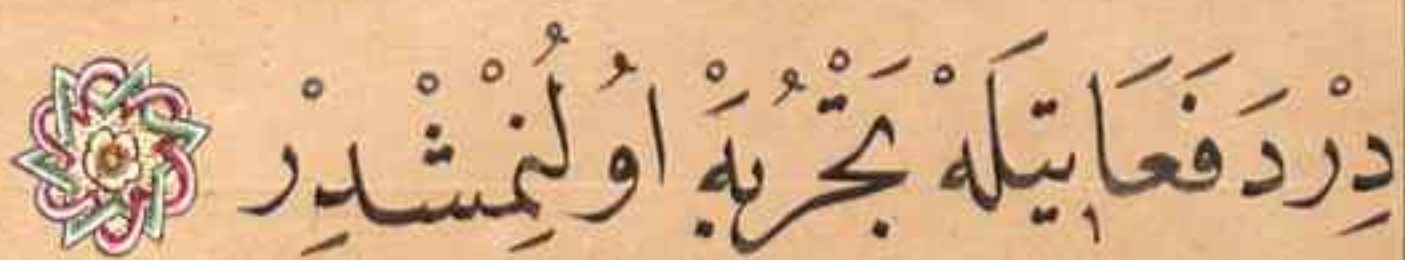 دِرْ دَفَعَاتِيلَهْ تَجْرُبَهْ أُولُنْمِشْدِرْ